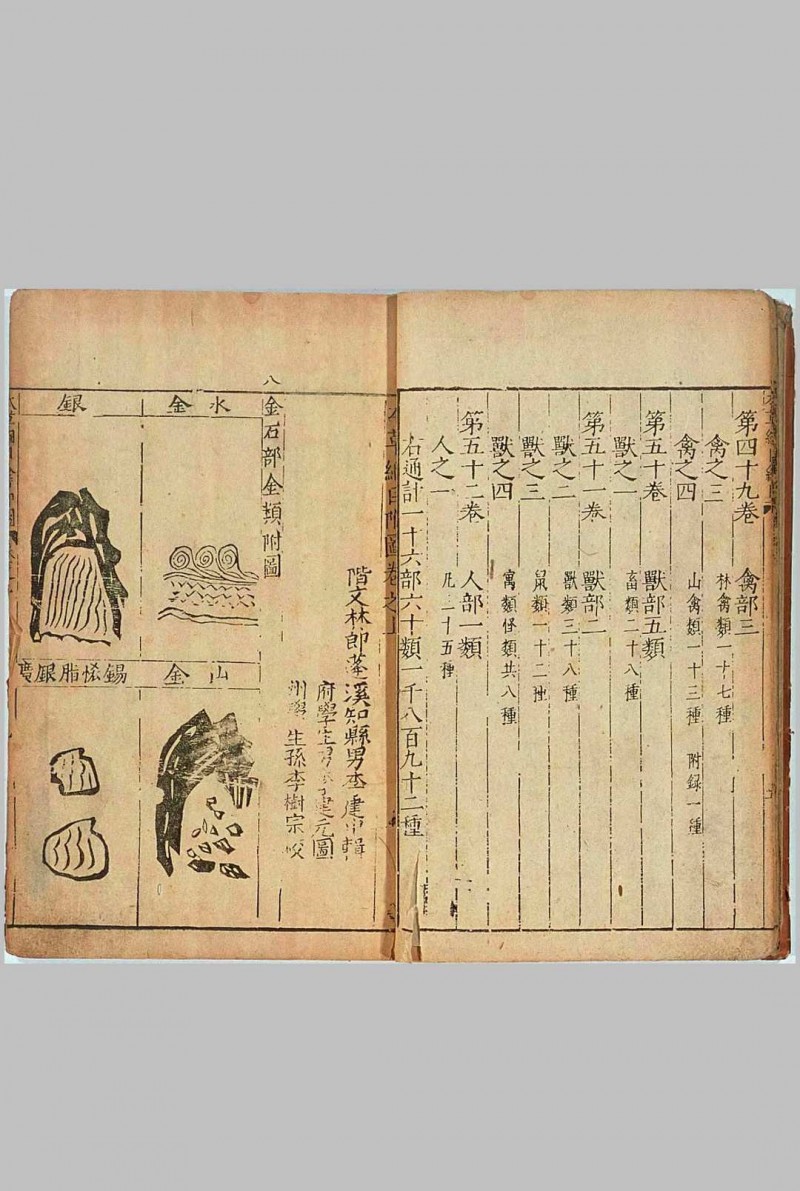 第四十九卷 禽部三
禽之三 林禽類一十七種
禽之四 山禽類一十三種 附録一種
第五十卷 獸部五類
獸之一 畜類二十八種
第五十一卷 獸部二
獸之二 獸類三十八種
獸之三 鼠類一十二種
獸之四 寓類怪類共八種
第五十二卷 人部一類
人之一 凡三十五種
右通計一十六部六十類一千八百九十二種
本草綱目附圖卷之上
階文林郎蓬溪知縣男李建中輯
府學生男李建元圖
州學生孫李樹宗校
金石部金類附圖
水金
銀
山金
錫恡脂銀礦